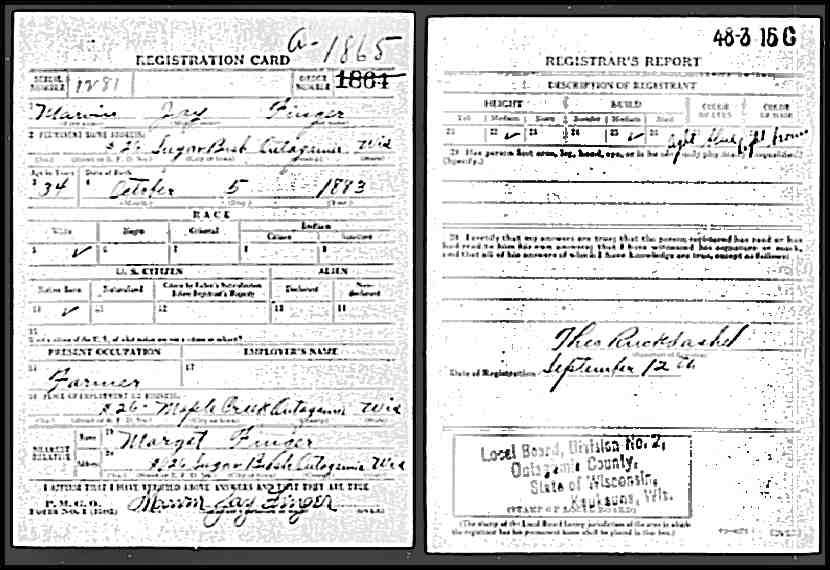 A-1865
REGISTRATION CARD
SERIAL NUMBER 1281 ORDER NUMBER 1864
1 Marvin Jay Finger
2 PERMANENT HOME ADDRESS:
#26 Sugar Bush Outagamie Wis
Age in Years Date of Birth
3 34 4 October 5 1883
(Month) (Day) (Year)
RACE
White Negro Oriental Indian
Citizen Noncitizen
5 ✓ 6 7 8 9
U. S. CITIZEN ALIEN
Native Born Naturalized Citizen by Father's Naturalization Before Registrant's Majority Declarant Non-declarant
10 ✓ 11 12 13 14
15
If not a citizen of the U. S., of what nation are you a citizen or subject?
PRESENT OCCUPATION EMPLOYER'S NAME
16 Farmer 17
18 PLACE OF EMPLOYMENT OR BUSINESS:
#26 Maple Creek Outagamie Wis
NEAREST RELATIVE Name 19 Margt Finger
Address 20 #26 Sugar Bush Outagamie Wis
I AFFIRM THAT I HAVE VERIFIED ABOVE ANSWERS AND THAT THEY ARE TRUE
P. M. G. O.
Form No. 1 (Red) Marvin Jay Finger
48-3 15 C
REGISTRAR'S REPORT
DESCRIPTION OF REGISTRANT
HEIGHT BUILD COLOR OF EYES COLOR OF HAIR
Tall Medium Short Slender Medium Stout
21 22 ✓ 23 24 25 ✓ 26 light blue light brown
29 Has person lost arm, leg, hand, eye, or is he obviously physically disqualified?
(Specify.)
30 I certify that my answers are true; that the person registered has read or has
had read to him his own answers; that I have witnessed his signature or mark,
and that all of his answers of which I have knowledge are true, except as follows:
Theo Ruckdashel
Date of Registration September 12th
Local Board, Division No. 2,
Outagamie County,
State of Wisconsin,
Kaukauna, Wis.
(STAMP OF LOCAL BOARD)
(The stamp of the Local Board having jurisdiction of the area in which
the registrant has his permanent home shall be placed in this box.)